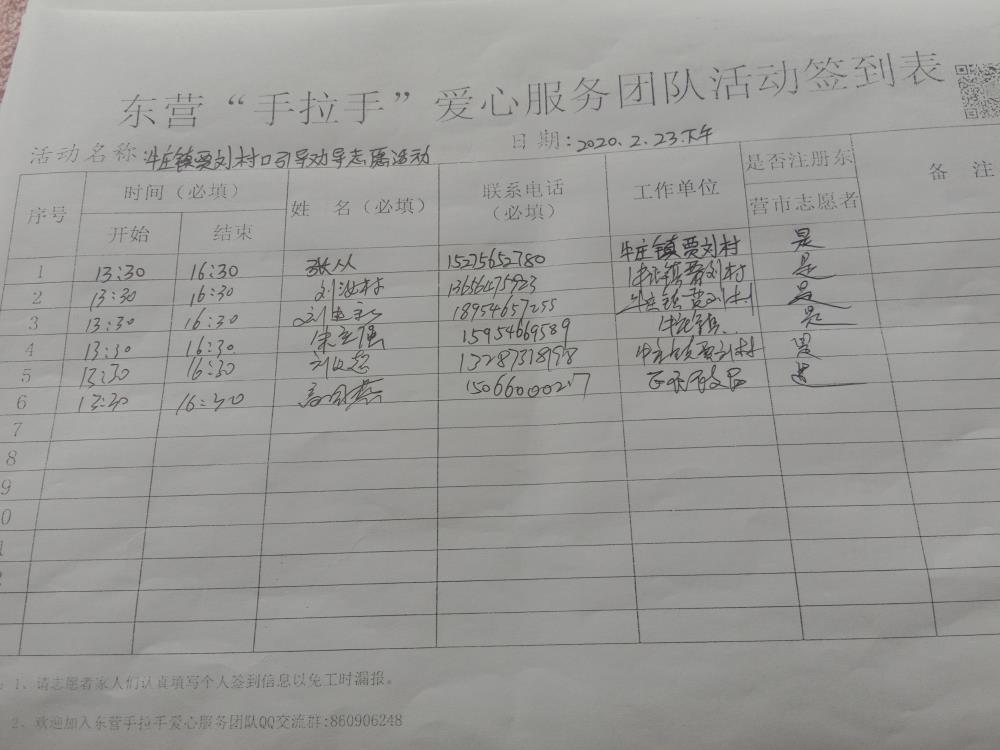 东营“手拉手”爱心服务团队活动签到表
日期:2020.2.23下午
活动名称:牛庄镇贾刘村口引导劝导志愿活动
序号 时间（必填） 开始 结束 姓 名（必填） 联系电话（必填） 工作单位 是否注册东营市志愿者 备 注
1 13:30 16:30 张从 15275652780 牛庄镇贾刘村 是
2 13:30 16:30 13656475923 牛庄镇贾刘村 是
3 13:30 16:30 18954657255 牛庄镇贾刘村 是
4 13:30 16:30 宋立强 15954669589 牛庄镇 是
5 13:30 16:30 13287318198 牛庄镇贾刘村 是
6 13:30 16:30 15066000217 是
7
8
9
0
1
2
1、请志愿者家人们认真填写个人签到信息以免工时漏报。
2、欢迎加入东营手拉手爱心服务团队QQ交流群:860906248